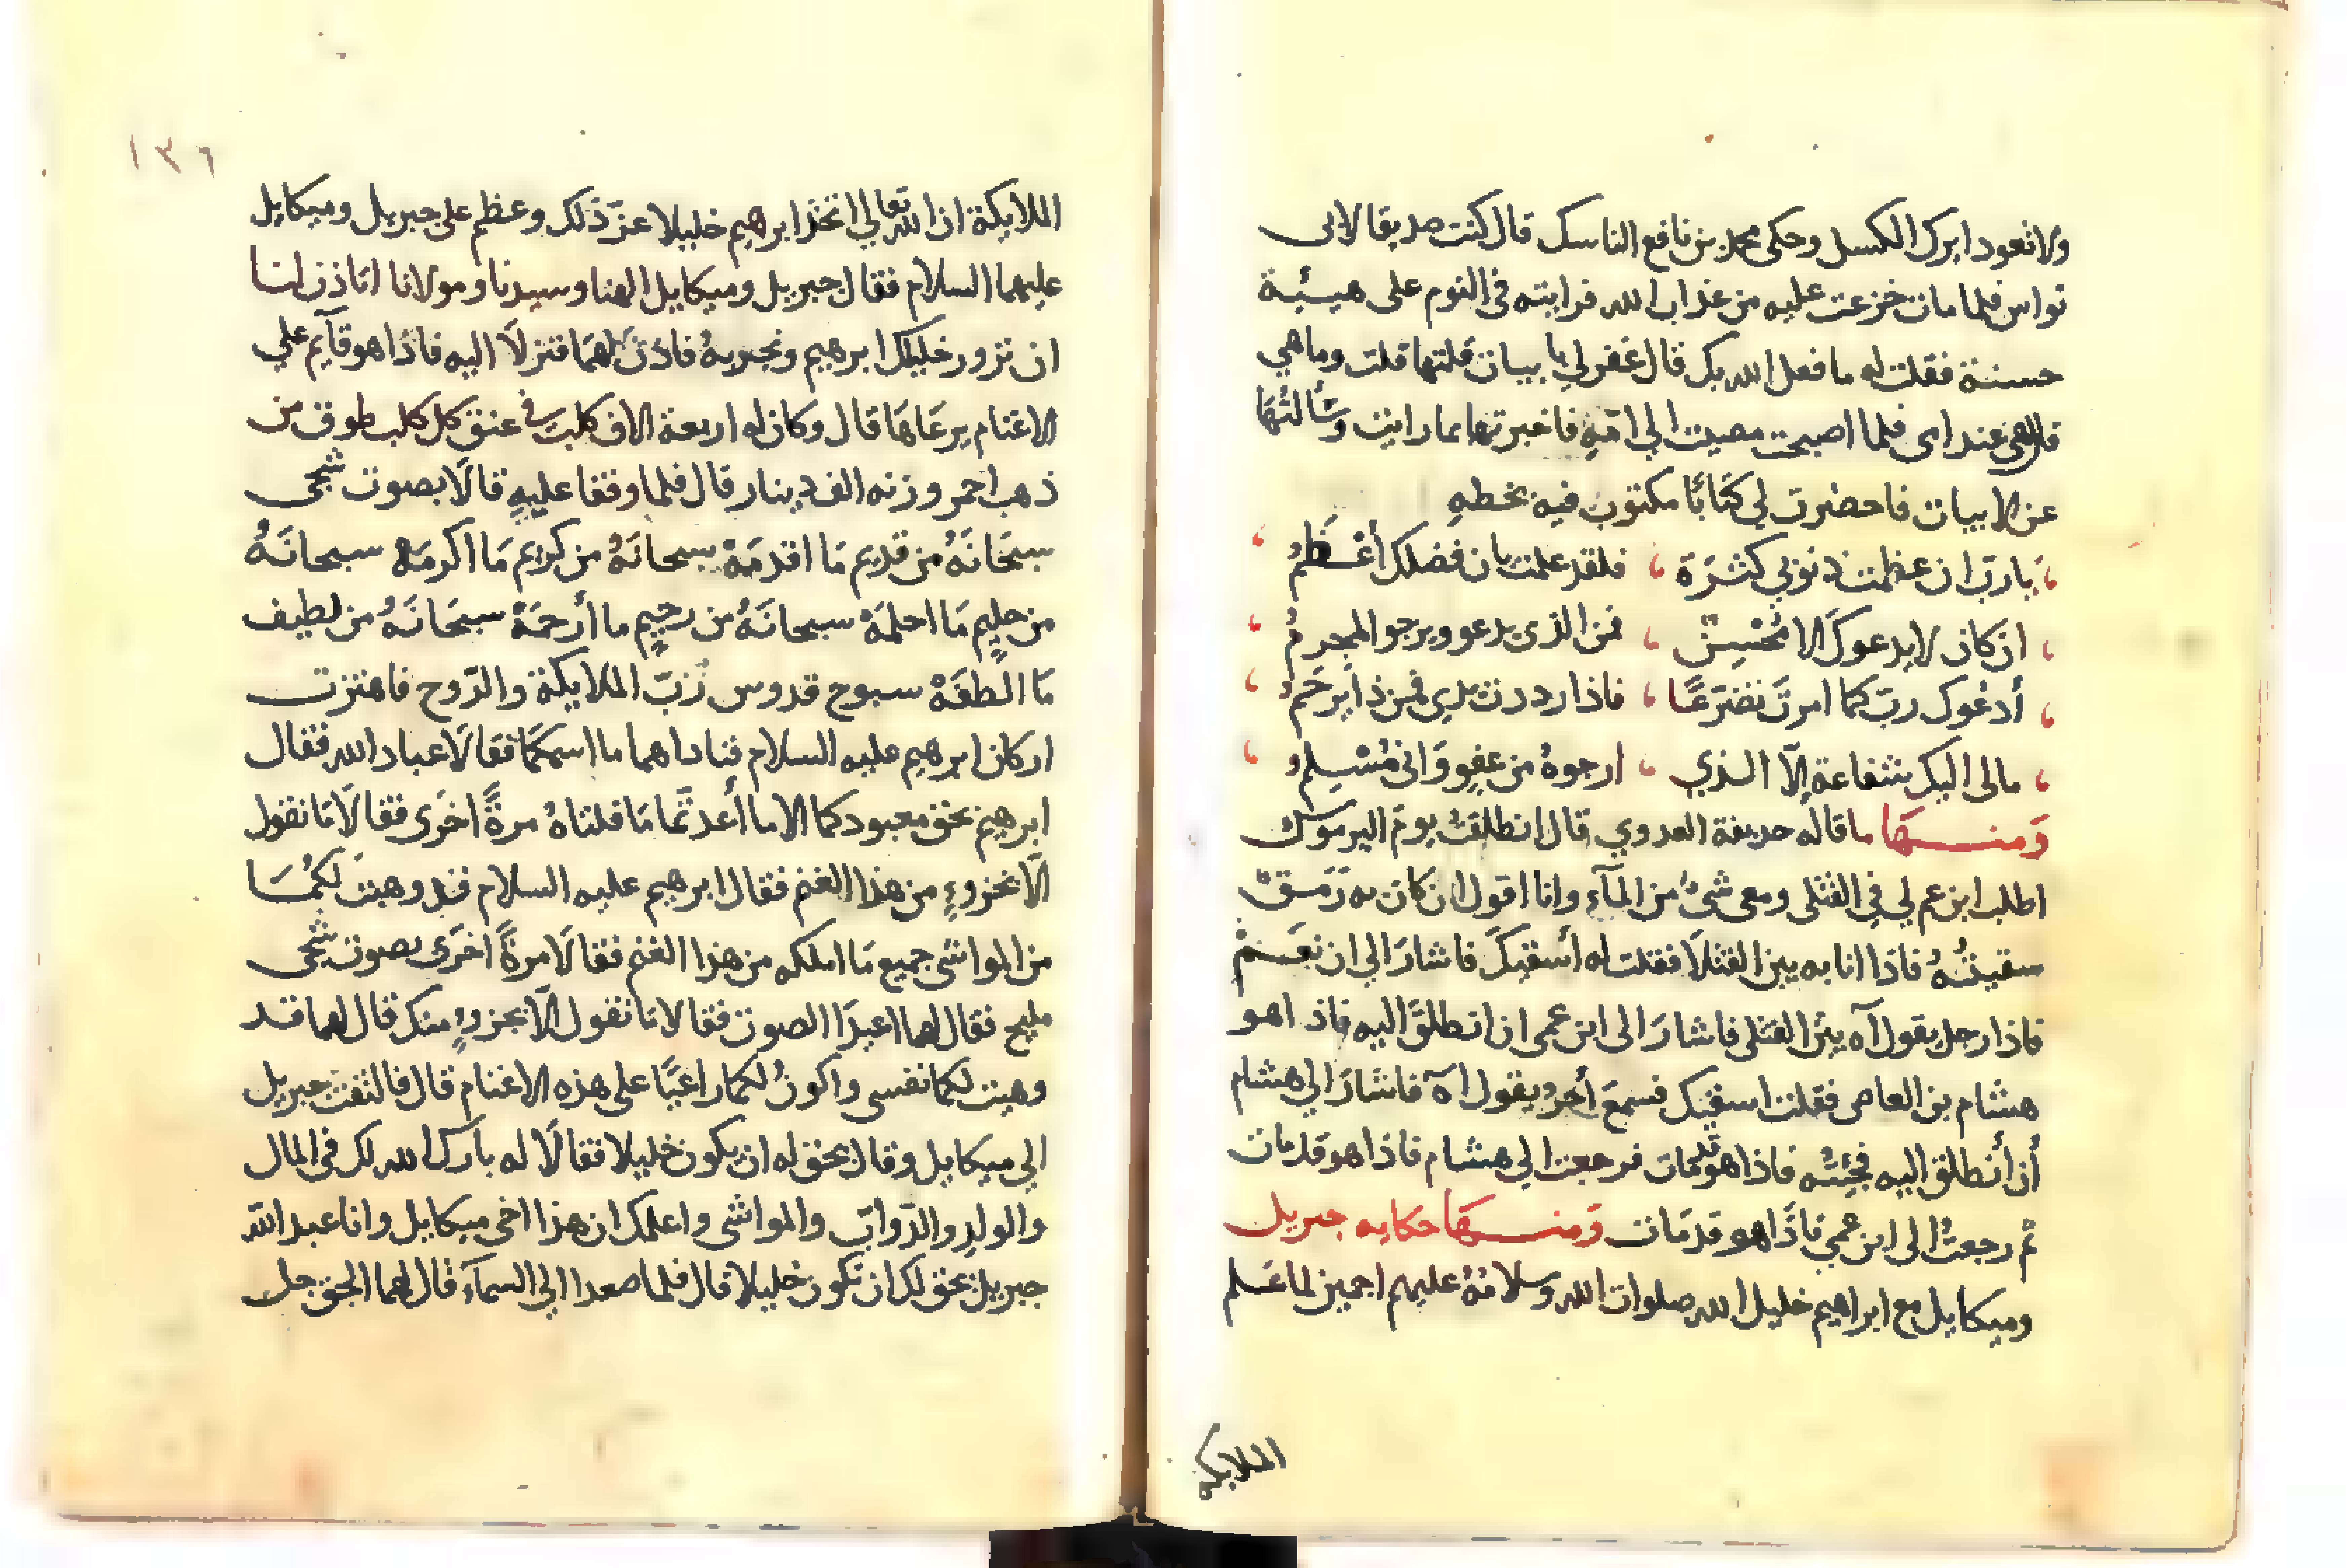 ولا تعود ابرك الكسل وحكى محمد بن نافع الناسك قال كنت صديقا لابى
نواس فلما مات خزعت عليه من عذاب الله فرايته فى النوم على هيئية
حسنة فقلت له ما فعل الله بك قال غفر لي با بيات قلتها قلت وما هي
قال هى عند امى فلما اصبحت مضيت الي امّهِ فاخبرتها بما رايت وسَألتُهَا
عن الابيات فاحضرت لي كتابًا مكتوب فيه بخطهِ
يا ربّ ان عظمت ذنوبي كثرَة ، فلقد علمت بان فضلك أعْظَمُ
ان كان لا يدعوكَ الا مُحْسِنٌ ، فمن الذى يدعو ويرجو المجرمُ
أدعُوك ربّ كما امرتَ تضرّعًا ، فاذا رددت يدي فمن ذا يرحَمُ
مالى اليك شفاعة إلّا الذي ، ارجوهُ من عفوٍ وَانى مُسْلِمُ
وَمنـهَا ما قاله حديفة العدوي قال انطلقتُ يومَ اليرموك
اطلب ابن عم لي فِي القتلى ومعى شىءٌ من المآء وانا اقول ان كان به رَمقٌ
سقيتُهُ فاذا انا به بين القتلَا فقلت له أسقيكَ فاشارَ الي ان نَعَمْ
فاذا رجل يقول آه بين القتلى فاشارَ الى ابن عمى ان انطلق اليه فاذا هو
هشام بن العاص فقلت اسقيك فسمعَ أخرُ يقول اهٓ فاشارَ الي هشام
أن أنطلق اليه فجئتُه فاذا هو قد مات فرجعت الي هشام فاذا هو قد مات
ثم رجعتُ الى ابن عمي فاذا هو قد مَات وَمنـهَا حكايه جبريل
وميكايل مع ابراهيم خليل الله صلوات الله وسلامُهُ عليهم اجمين لما عَلم
الملايكه
١٣٦
الملايكة ان الله تعالي اتخذ ابرهيم خليلا عزّ ذلك وعظم على جبريل وميكايل
عليهما السلام فقال جبريل وميكايل الهنا وسيدنا ومولانا اتاذن لنا
ان نزور خليلك ابرهيم ونجربهُ فاذن لهمَا فنزلَا اليه فاذا هو قآيم علي
الاغنام يرعَاهَا قال وكان له اربعة الاف كلب في عنق كل كلب طوق من
ذهب احمر وزنه الف دينار قال فلما وقفا عليهِ قالَا بصوت شجى
سبحَانَهُ من قديم مَا اقدمَهْ سبحانَهُ من كريم مَا اكرمَهْ سبحانَهُ
من حليمٍ مَا احلمَهْ سبحانَهُ من رحيمٍ ما أرحمَهْ سبحَانَهُ من لطيف
مَا الطفَهْ سبوح قدوس رَبّ الملايكة والرّوح فاهتزت
اركان ابرهيم عليه السلام فناداهما ما اسمكمَا فقالَا عباد الله فقال
ابرهيم بحق معبودكما الا ما أعدتُما مَا قلتاهُ مرةً اخرَى فقالَا مَا نقول
الّا بجزوءٍ من هذا الغنم فقال ابرهيم عليه السلام قد وهبتَ لكُمَا
من المواشى جميع مَا املكه من هذا الغنم فقالَا مرةً اخرَى بصوت شجى
مليح فقال لهما اعيدَا الصوت فقالا مَا نقول الّا بجزوءٍ منك قال لهما قد
وهبت لكما نفسى واكونُ لكما راعيًا على هذه الاغنام قال فالتفت جبريل
الي ميكايل وقال يحق له ان يكون خليلا فقالَا له بارك الله لك فى المال
والولدِ والدّوابّ والمواشى واعلمك ان هذا اخى ميكايل وانا عبد الله
جبريل يحق لك ان تكون خليلا قال فلما صعدا الي السمآء قال لهما الحق جل